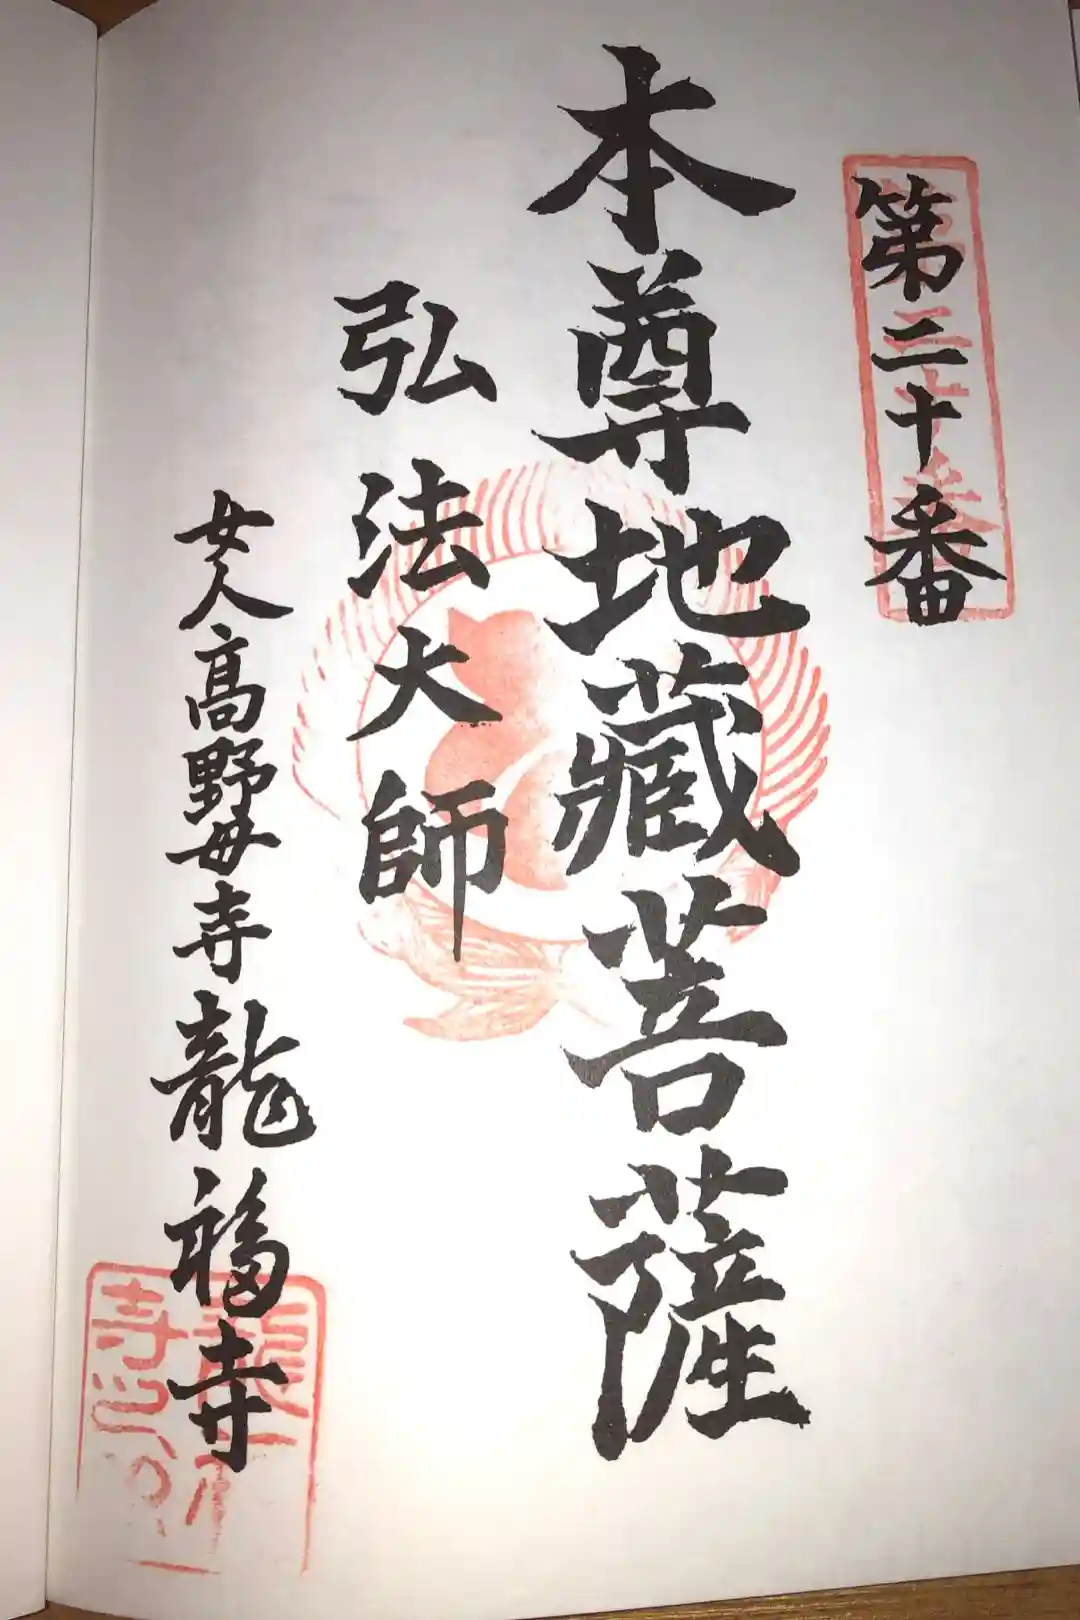 第二十番
本尊地藏菩薩
弘法大師
女人高野母寺龍福寺